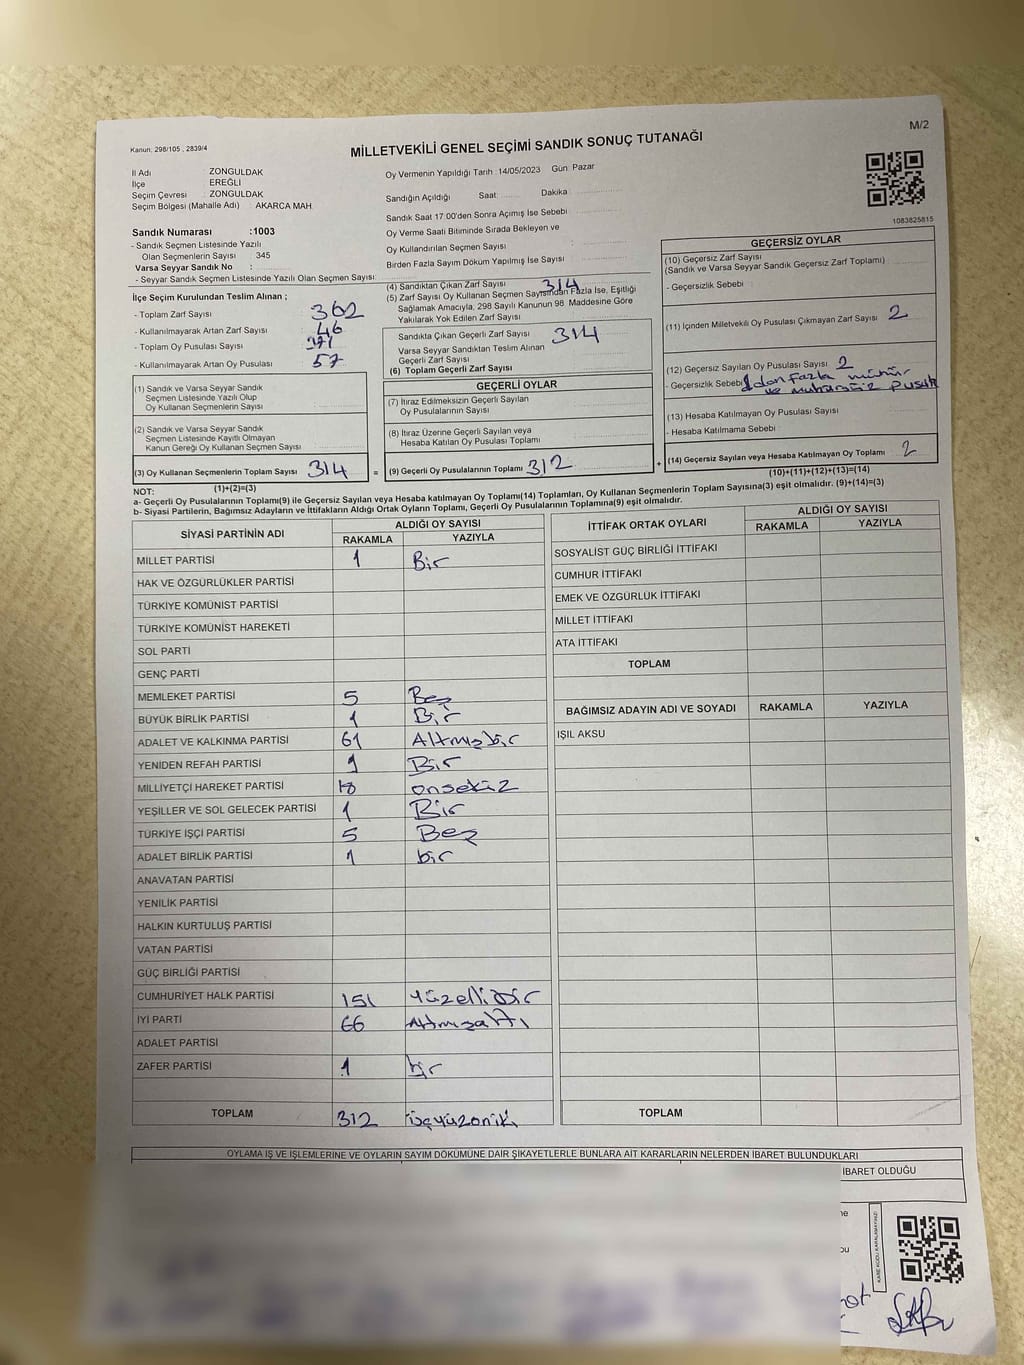 Kanun: 298/105 , 2839/4
M/2
MİLLETVEKİLİ GENEL SEÇİMİ SANDIK SONUÇ TUTANAĞI
İl Adı ZONGULDAK
İlçe EREĞLİ
Seçim Çevresi ZONGULDAK
Seçim Bölgesi (Mahalle Adı) : AKARCA MAH.
Oy Vermenin Yapıldığı Tarih :14/05/2023 Gün: Pazar
Sandığın Açıldığı Saat: Dakika :
Sandık Saat 17:00'den Sonra Açımış İse Sebebi :
Oy Verme Saati Bitiminde Sırada Bekleyen ve
Oy Kullandırılan Seçmen Sayısı :
Birden Fazla Sayım Döküm Yapılmış İse Sayısı :
1083825815
Sandık Numarası :1003
- Sandık Seçmen Listesinde Yazılı
Olan Seçmenlerin Sayısı : 345
Varsa Seyyar Sandık No :
- Seyyar Sandık Seçmen Listesinde Yazılı Olan Seçmen Sayısı:
İlçe Seçim Kurulundan Teslim Alınan ;
- Toplam Zarf Sayısı : 362
- Kullanılmayarak Artan Zarf Sayısı : 46
- Toplam Oy Pusulası Sayısı : 371
- Kullanılmayarak Artan Oy Pusulası : 57
(1) Sandık ve Varsa Seyyar Sandık
Seçmen Listesinde Yazılı Olup
Oy Kullanan Seçmenlerin Sayısı :
(2) Sandık ve Varsa Seyyar Sandık
Seçmen Listesinde Kayıtlı Olmayan
Kanun Gereği Oy Kullanan Seçmen Sayısı :
(3) Oy Kullanan Seçmenlerin Toplam Sayısı : 314
(1)+(2)=(3)
(4) Sandıktan Çıkan Zarf Sayısı : 314
(5) Zarf Sayısı Oy Kullanan Seçmen Sayısından Fazla İse, Eşitliği
Sağlamak Amacıyla, 298 Sayılı Kanunun 98. Maddesine Göre
Yakılarak Yok Edilen Zarf Sayısı :
Sandıkta Çıkan Geçerli Zarf Sayısı : 314
Varsa Seyyar Sandıktan Teslim Alınan
Geçerli Zarf Sayısı :
(6) Toplam Geçerli Zarf Sayısı :
GEÇERLİ OYLAR
(7) İtiraz Edilmeksizin Geçerli Sayılan
Oy Pusulalarının Sayısı :
(8) İtiraz Üzerine Geçerli Sayılan veya
Hesaba Katılan Oy Pusulası Toplamı :
= (9) Geçerli Oy Pusulalarının Toplamı : 312
GEÇERSİZ OYLAR
(10) Geçersiz Zarf Sayısı :
(Sandık ve Varsa Seyyar Sandık Geçersiz Zarf Toplamı)
- Geçersizlik Sebebi :
(11) İçinden Milletvekili Oy Pusulası Çıkmayan Zarf Sayısı : 2
(12) Geçersiz Sayılan Oy Pusulası Sayısı : 2
- Geçersizlik Sebebi : 1den fazla mühür
ve mühürsüz pusula
(13) Hesaba Katılmayan Oy Pusulası Sayısı :
- Hesaba Katılmama Sebebi :
+ (14) Geçersiz Sayılan veya Hesaba Katılmayan Oy Toplamı : 2
(10)+(11)+(12)+(13)=(14)
NOT:
a- Geçerli Oy Pusulalarının Toplamı(9) ile Geçersiz Sayılan veya Hesaba katılmayan Oy Toplamı(14) Toplamları, Oy Kullanan Seçmenlerin Toplam Sayısına(3) eşit olmalıdır. (9)+(14)=(3)
b- Siyasi Partilerin, Bağımsız Adayların ve İttifakların Aldığı Ortak Oyların Toplamı, Geçerli Oy Pusulalarının Toplamına(9) eşit olmalıdır.
SİYASİ PARTİNİN ADI ALDIĞI OY SAYISI
RAKAMLA YAZIYLA
MİLLET PARTİSİ 1 Bir
HAK VE ÖZGÜRLÜKLER PARTİSİ
TÜRKİYE KOMÜNİST PARTİSİ
TÜRKİYE KOMÜNİST HAREKETİ
SOL PARTİ
GENÇ PARTİ
MEMLEKET PARTİSİ 5 Beş
BÜYÜK BİRLİK PARTİSİ 1 Bir
ADALET VE KALKINMA PARTİSİ 61 Altmışbir
YENİDEN REFAH PARTİSİ 1 Bir
MİLLİYETÇİ HAREKET PARTİSİ 18 onsekiz
YEŞİLLER VE SOL GELECEK PARTİSİ 1 Bir
TÜRKİYE İŞÇİ PARTİSİ 5 Beş
ADALET BİRLİK PARTİSİ 1 bir
ANAVATAN PARTİSİ
YENİLİK PARTİSİ
HALKIN KURTULUŞ PARTİSİ
VATAN PARTİSİ
GÜÇ BİRLİĞİ PARTİSİ
CUMHURİYET HALK PARTİSİ 151 Yüzellibir
İYİ PARTİ 66 Altmışaltı
ADALET PARTİSİ
ZAFER PARTİSİ 1 bir
TOPLAM 312 üçyüzoniki
İTTİFAK ORTAK OYLARI ALDIĞI OY SAYISI
RAKAMLA YAZIYLA
SOSYALİST GÜÇ BİRLİĞİ İTTİFAKI
CUMHUR İTTİFAKI
EMEK VE ÖZGÜRLÜK İTTİFAKI
MİLLET İTTİFAKI
ATA İTTİFAKI
TOPLAM
BAĞIMSIZ ADAYIN ADI VE SOYADI RAKAMLA YAZIYLA
IŞIL AKSU
TOPLAM
OYLAMA İŞ VE İŞLEMLERİNE VE OYLARIN SAYIM DÖKÜMÜNE DAİR ŞİKAYETLERLE BUNLARA AİT KARARLARIN NELERDEN İBARET BULUNDUKLARI
İBARET OLDUĞU